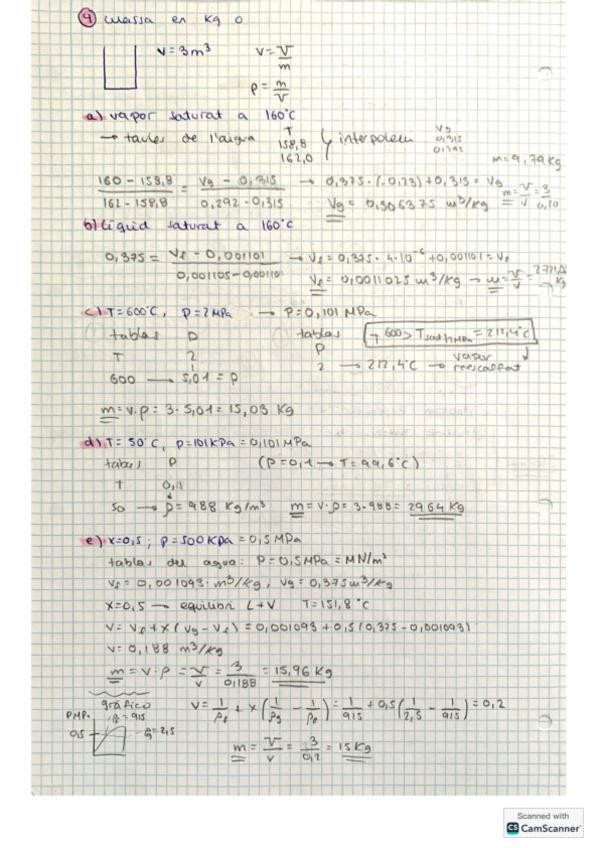 4 massa en kg o
V = 3m³ v = V/m
ρ = m/V
a) vapor saturat a 160°C
→ taules de l'aigua T interpolem Vg
158,8 0,315
162,0 0,292
m = 9,79 kg
(160 - 158,8)/(162 - 158,8) = (Vg - 0,315)/(0,292 - 0,315) → 0,375 · (-0,23) + 0,315 = Vg
Vg = 0,306375 m³/kg
b) Líquid saturat a 160°C
0,375 = (Vl - 0,001101)/(0,001105 - 0,001101) → Vl = 0,375 · 4·10⁻⁶ + 0,001101 = Vl
Vl = 0,0011025 m³/kg → m = V/v =
c) T = 600°C, P = 2MPa → P = 0,101 MPa
tablas ρ tablas → 600 > Tsat 2MPa = 212,4°C
T 2 P vapor
600 → 5,01 = ρ 2 → 212,4°C → reescalfat
m = V·ρ = 3·5,01 = 15,03 Kg
d) T = 50°C, p = 101 KPa = 0,101 MPa
tablas P (P = 0,1 → T = 99,6°C)
T 0,1
50 → ρ = 988 Kg/m³ m = V·ρ = 3·988 = 2964 Kg
e) x = 0,5; P = 500 KPa = 0,5 MPa
tablas del agua: P = 0,5 MPa = MN/m²
Vl = 0,001093 m³/kg, Vg = 0,375 m³/kg
X = 0,5 → equilibri L+V T = 151,8 °C
V = Vl + X (Vg - Vl) = 0,001093 + 0,5 (0,375 - 0,001093)
V = 0,188 m³/kg
m = V·ρ = V/v = 3/0,188 = 15,96 Kg
gráfico V = 1/ρl + x(1/ρg - 1/ρl) = 1/915 + 0,5(1/2,5 - 1/915) = 0,2
ρl = 915
0,5 ρg = 2,5
m = V/v = 3/0,2 = 15 Kg
Scanned with
CS CamScanner